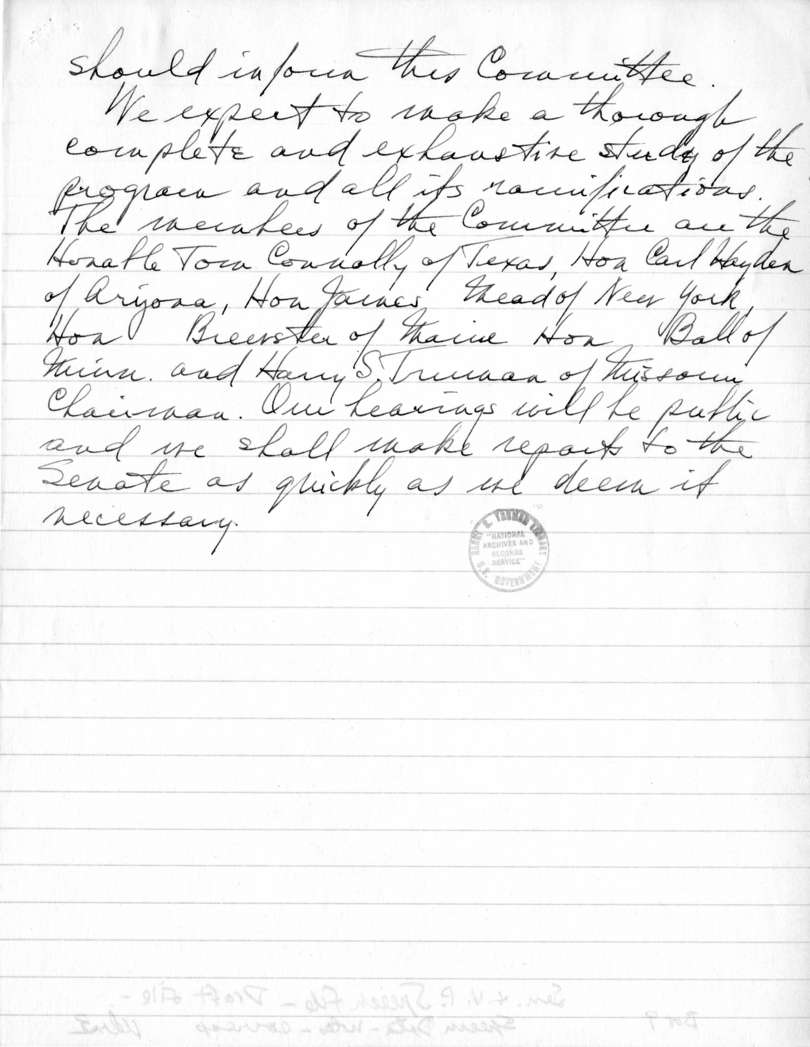 should inform this Committee.
We expect to make a thorough
complete and exhaustive study of the
program and all its ramifications.
The members of the Committee are the
Honable Tom Connally of Texas, Hon Carl Hayden
of Arizona, Hon James Mead of New York,
Hon Brewster of Maine Hon Ball of
Minn. and Harry S. Truman of Missouri
Chairman. Our hearings will be public
and we shall make reports to the
Senate as quickly as we deem it
necessary.
HARRY S. TRUMAN LIBRARY
"NATIONAL
ARCHIVES AND
RECORDS
SERVICE"
U.S. GOVERNMENT
Sen. & V.P. Speech File - Draft File -
Box 9